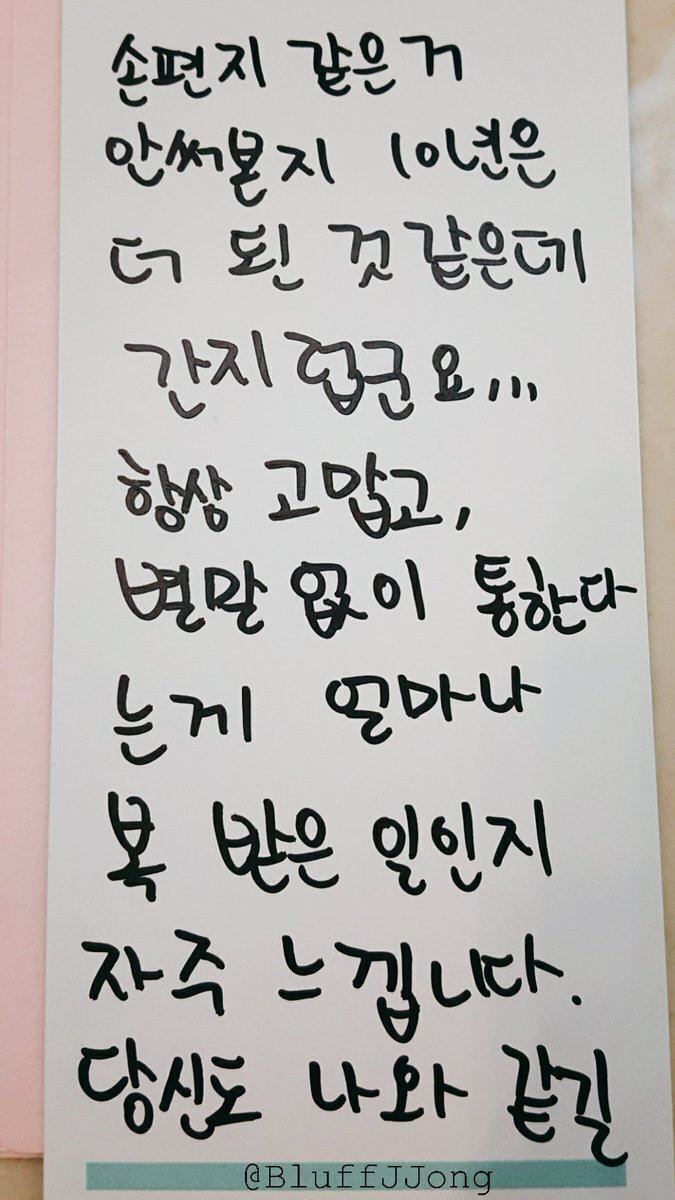 손편지 같은거
안써본지 10년은
더 된 것 같은데
간지럽군요...
항상 고맙고,
별말 없이 통한다
는게 얼마나
복 받은 일인지
자주 느낍니다.
당신도 나와 같길
@BluffJJong